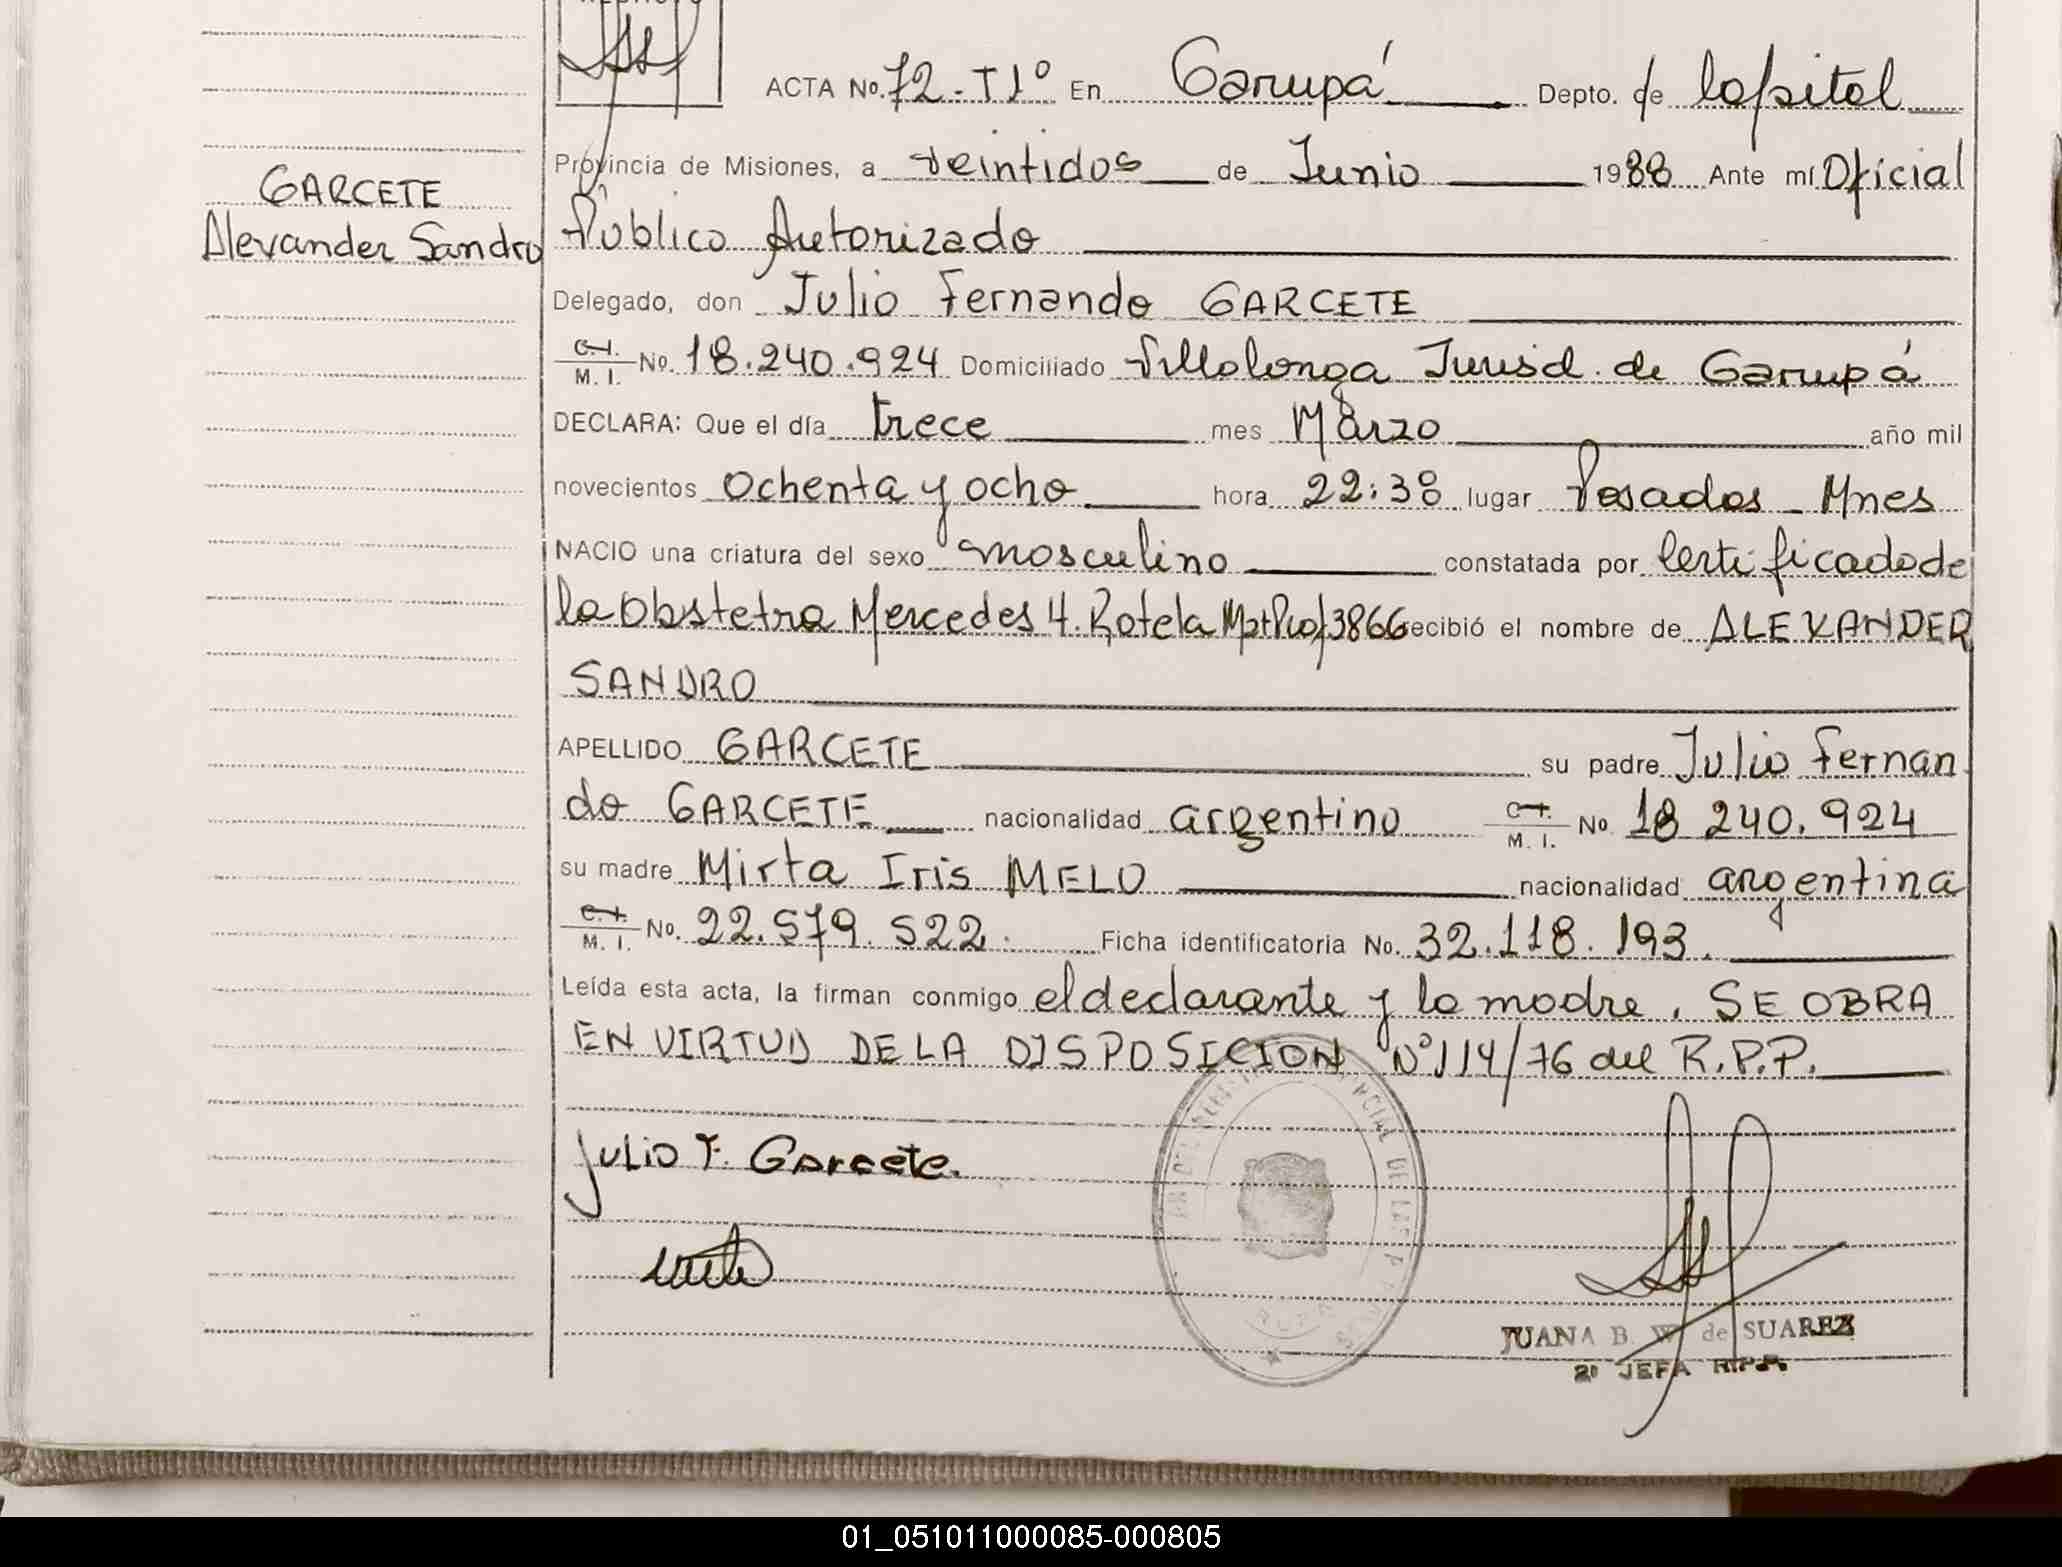 ACTA No. 72-T1º En Garupá Depto. de Capital
Provincia de Misiones, a veintidos de Junio 1988 Ante mí Oficial
GARCETE
Alexander Sandro
Público Autorizado
Delegado, don Julio Fernando GARCETE
C.I. M. I. No. 18.240.924 Domiciliado Villalonga Jurisd. de Garupá
DECLARA: Que el día trece mes Marzo año mil
novecientos ochenta y ocho hora 22:38 lugar Posadas - Mnes
NACIO una criatura del sexo masculino constatada por Certificado de
la Obstetra Mercedes H. Rotela Mat Prof 3866 recibió el nombre de ALEXANDER
SANDRO
APELLIDO GARCETE su padre Julio Fernan
do GARCETE nacionalidad argentino C.I. M. I. No 18 240.924
su madre Mirta Iris MELO nacionalidad argentina
C.I. M. I. No. 22.579.522. Ficha identificatoria No. 32.118.193.
Leída esta acta, la firman conmigo el declarante y la madre. SE OBRA
EN VIRTUD DE LA DISPOSICION Nº114/76 del R.P.P.
Julio F. Garcete.
JUANA B. W. de SUAREZ
2º JEFA R.P.P.
01_051011000085-000805